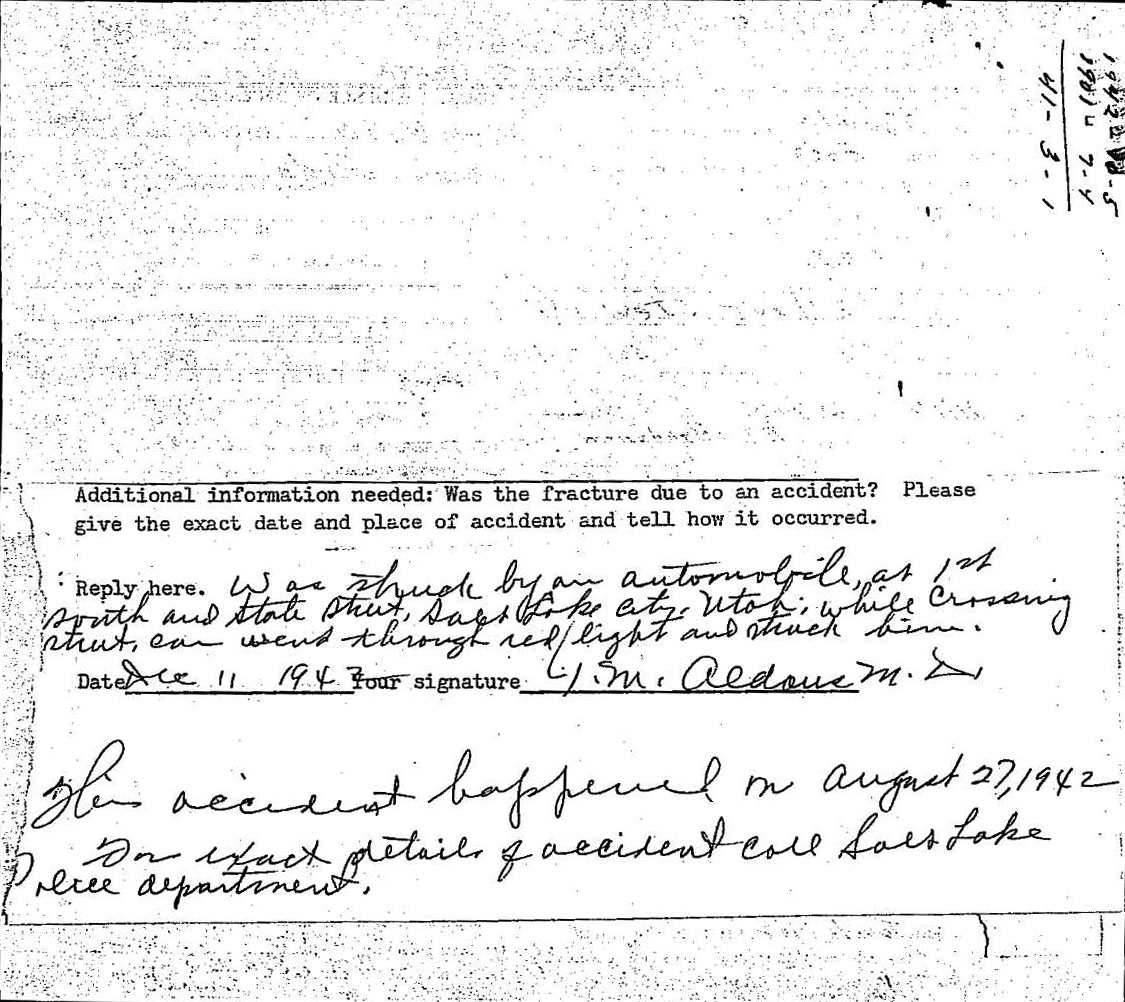 Additional information needed: Was the fracture due to an accident? Please
give the exact date and place of accident and tell how it occurred.
Reply here. Was struck by an automobile, at 1st
South and State Street, Salt Lake City, Utah; while crossing
street, car went through red light and struck him.
Date Dec 11 1943 Your signature M. Aldous M.D.
This accident happened on August 27, 1942
For exact details of accident call Salt Lake
Police department.
41-3-1